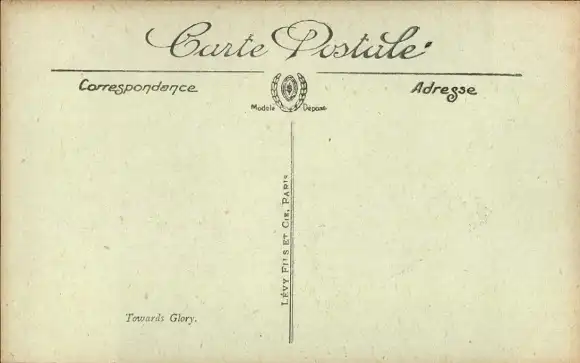 Carte Postale
Correspondance
Adresse
Modèle Déposé
LÉVY FILS ET CIE, PARIS
Towards Glory.